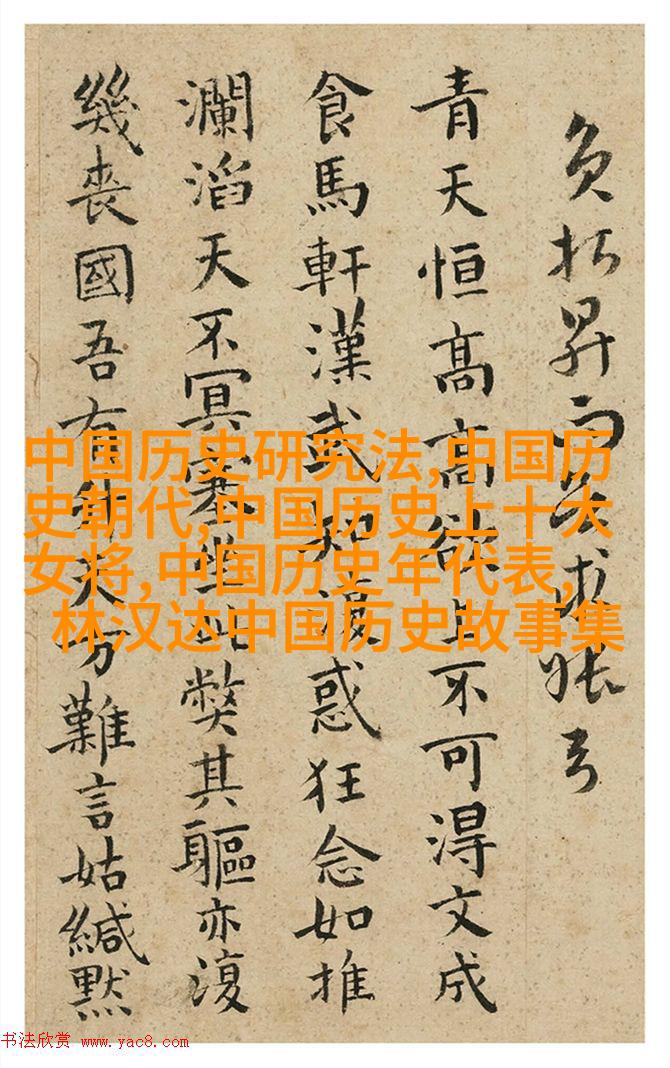 昇而求
青天恒高高欲上不可得文成
食馬軒漢武知復惑狂念如推
瀾滔天不冥塞坐此弊其軀亦復
幾喪國吾有天方難言姑緘默
中国历史研究法,中国历
史朝代,中国历史上十大
女将,中国历史年代表,
林汉达中国历史故事集
书法欣赏 www.yac8.com